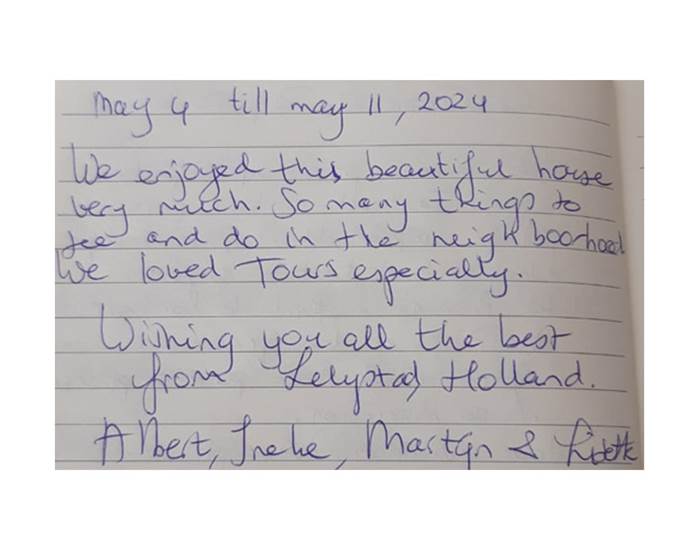 May 4 till may 11, 2024
We enjoyed this beautiful house
very much. So many things to
see and do in the neighboorhood
We loved Tours especially.
Wishing you all the best
from Lelystad, Holland.
Albert, Ineke, Martijn &